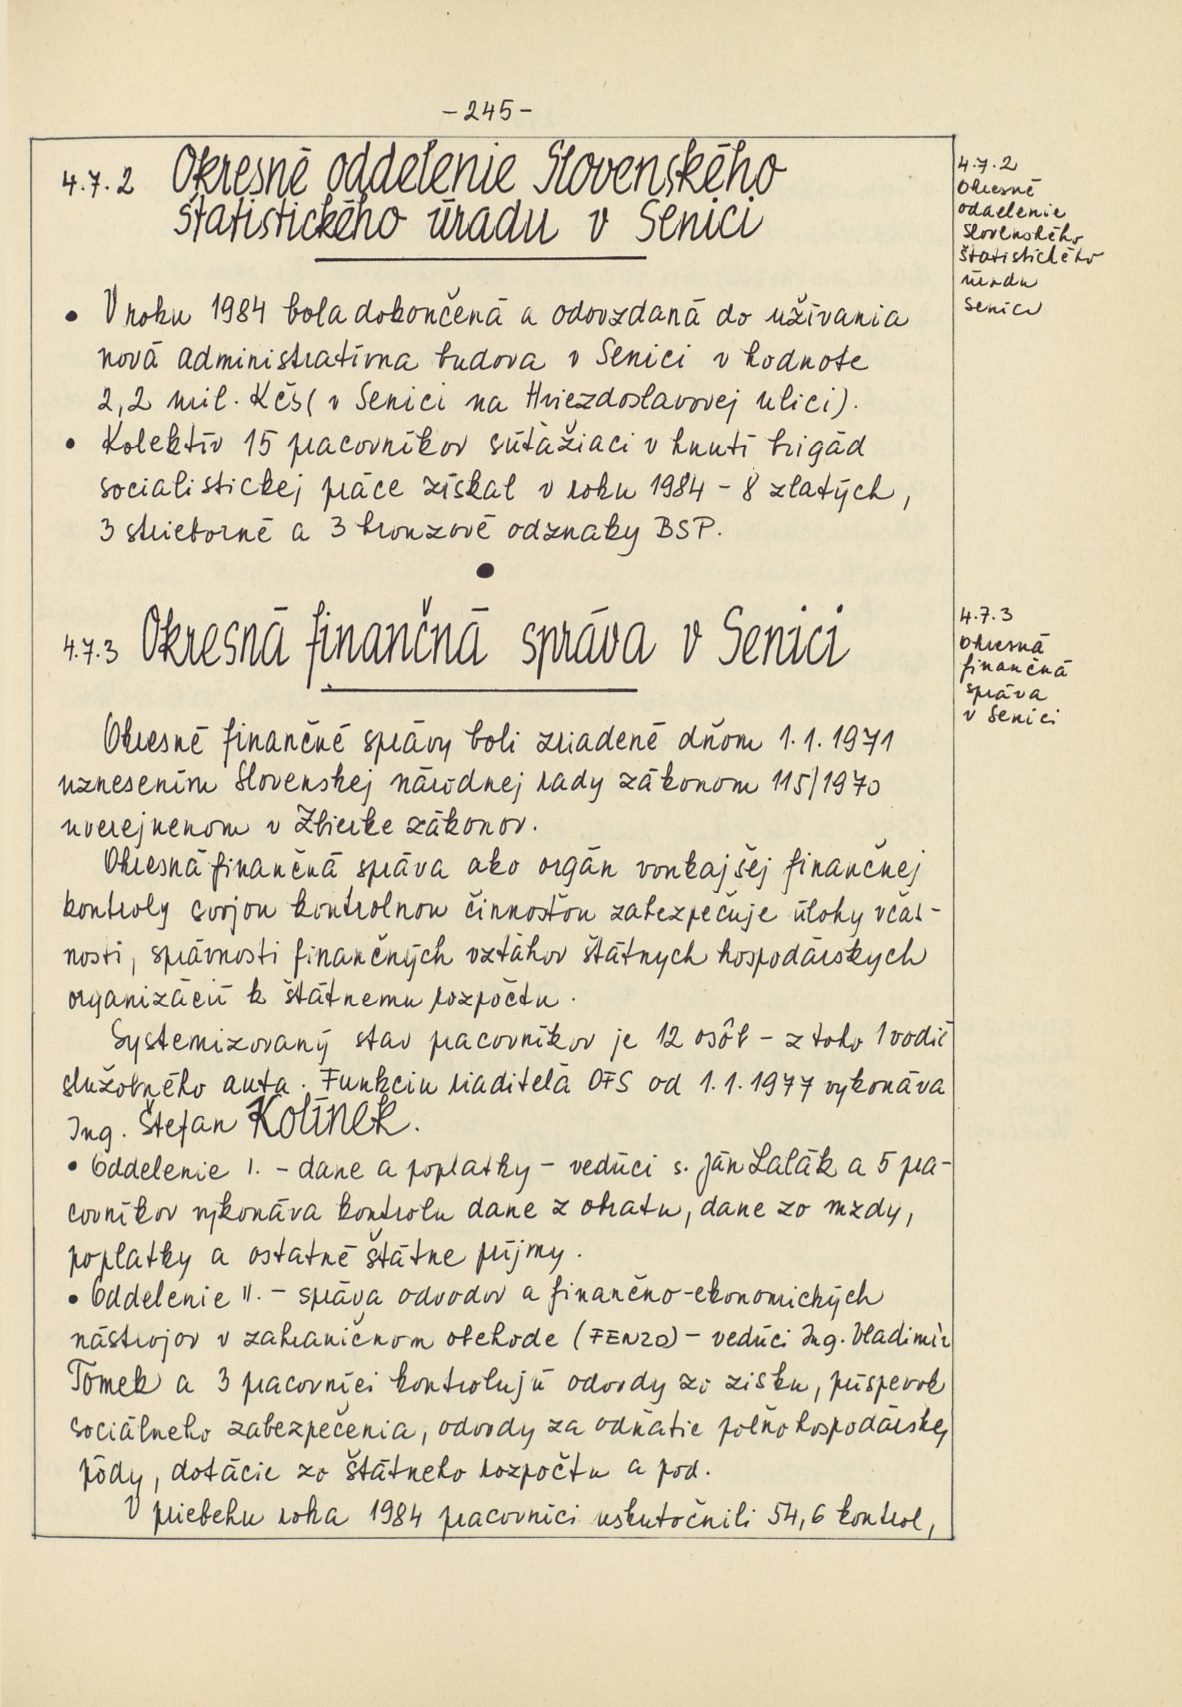 -245-
4.7.2 Okresné oddelenie Slovenského
štatistického úradu v Senici
• V roku 1984 bola dokončená a odovzdaná do užívania
nová administratívna budova v Senici v hodnote
2,2 mil. Kčs (v Senici na Hviezdoslavovej ulici).
• Kolektív 15 pracovníkov súťažiaci v hnutí brigád
socialistickej práce získal v roku 1984 - 8 zlatých,
3 strieborné a 3 bronzové odznaky BSP.
•
4.7.3 Okresná finančná správa v Senici
Okresné finančné správy boli zriadené dňom 1.1.1971
uznesením Slovenskej národnej rady zákonom 115/1970
uverejnenom v Zbierke zákonov.
Okresná finančná správa ako orgán vonkajšej finančnej
kontroly svojou kontrolnou činnosťou zabezpečuje úlohy včas-
nosti, správnosti finančných vzťahov štátnych hospodárskych
organizácií k štátnemu rozpočtu.
Systemizovaný stav pracovníkov je 12 osôb - z toho 1 vodič
služobného auta. Funkciu riaditeľa OFS od 1.1.1977 vykonáva
Ing. Štefan Kolínek.
• Oddelenie I. - dane a poplatky - vedúci s. Ján Laták a 5 pra-
covníkov vykonáva kontrolu dane z obratu, dane zo mzdy,
poplatky a ostatné štátne príjmy.
• Oddelenie II. - správa odvodov a finančno-ekonomických
nástrojov v zahraničnom obchode (FENZO) - vedúci Ing. Vladimír
Tomek a 3 pracovníci kontrolujú odvody zo zisku, príspevok
sociálneho zabezpečenia, odvody za odňatie poľnohospodárskej
pôdy, dotácie zo štátneho rozpočtu a pod.
V priebehu roka 1984 pracovníci uskutočnili 54,6 kontrol,
4.7.2
Okresné
oddelenie
Slovenského
štatistického
úradu
Senici
4.7.3
Okresná
finančná
správa
v Senici